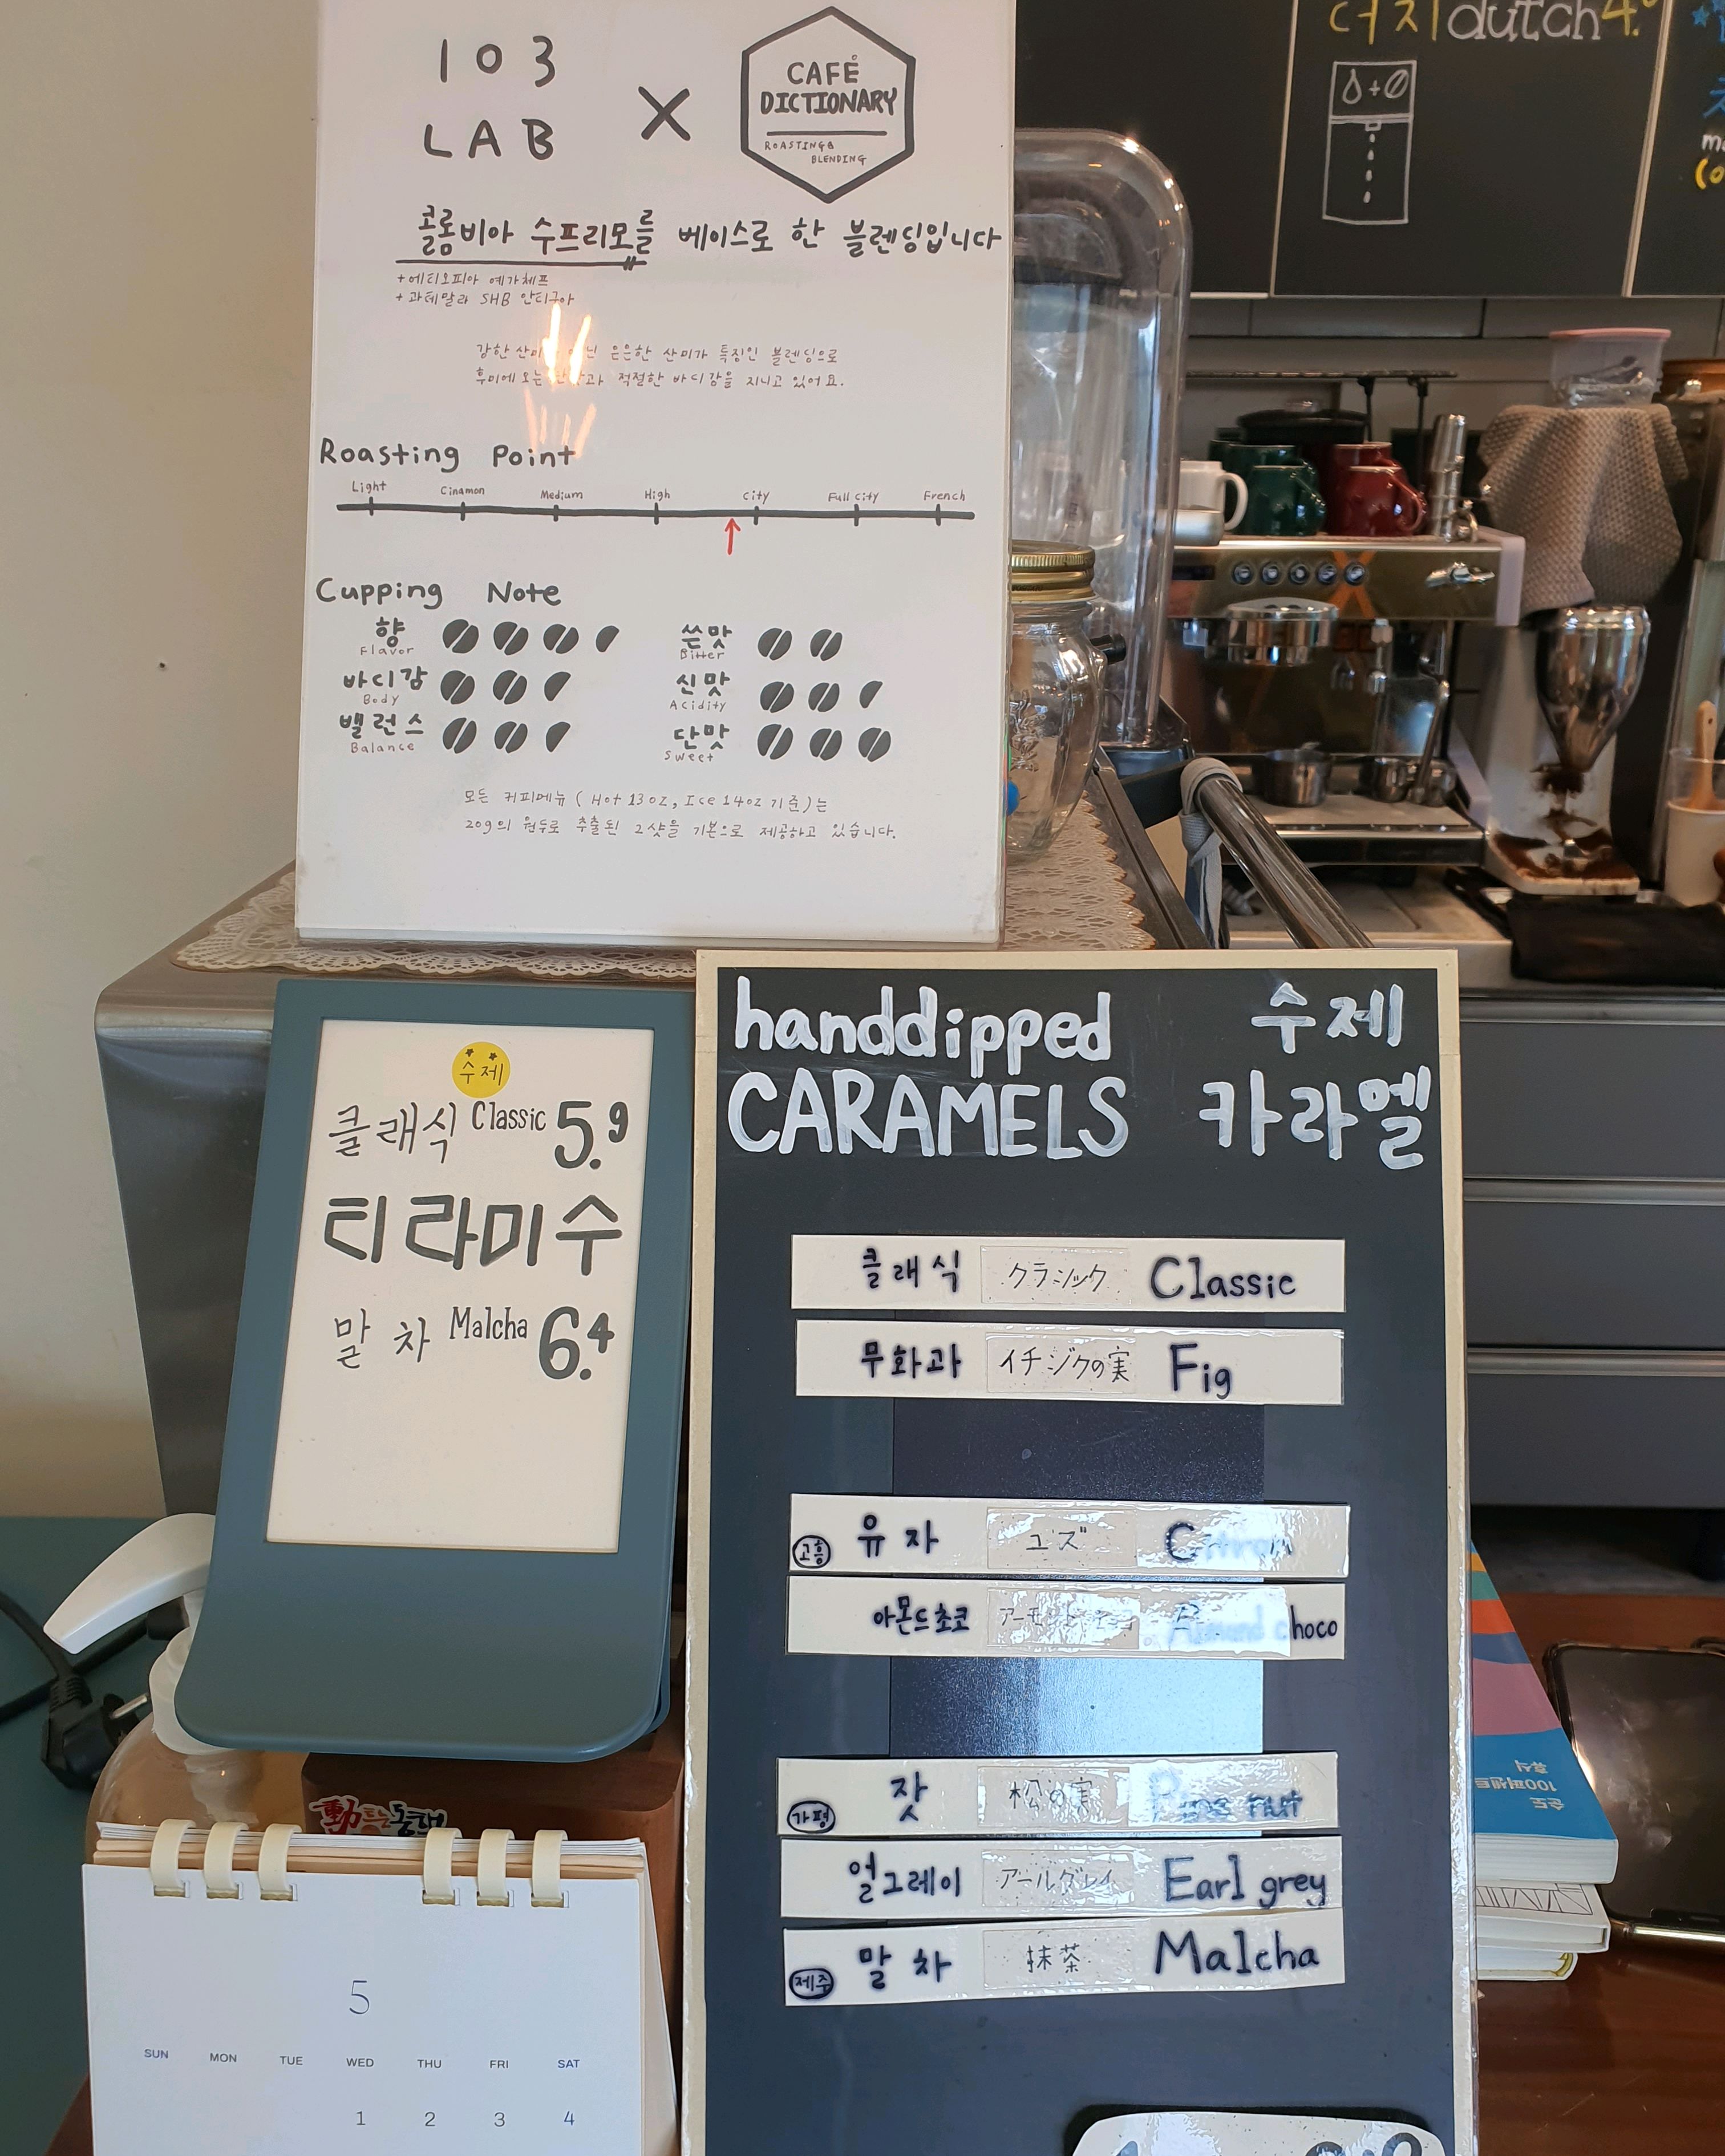 103
LAB
X
CAFÉ
DICTIONARY
ROASTING&
BLENDING
콜롬비아 수프리모를 베이스로 한 블렌딩입니다
+에티오피아 예가체프
+과테말라 SHB 안티구아
강한 은은한 산미가 특징인 블렌딩으로
후미에 오는 적절한 바디감을 지니고 있어요.
Roasting Point
Light Cinamon Medium High City Full City French
Cupping Note
향
Flavor
바디감
Body
밸런스
Balance
쓴맛
Bitter
신맛
Acidity
단맛
Sweet
모든 커피메뉴 (Hot 13oz, Ice 14oz 기준)는
20g의 원두로 추출된 2샷을 기본으로 제공하고 있습니다.
더치dutch4.
수제
클래식 Classic 5.9
티라미수
말차 Malcha 6.4
handdipped 수제
CARAMELS 카라멜
클래식 クラシック Classic
무화과 イチジクの実 Fig
고흥 유자 ユズ Citron
아몬드초코 アーモンドチョコ Almond choco
가평 잣 松の実 Pine nut
얼그레이 アールグレイ Earl grey
제주 말차 抹茶 Malcha
순도
100퍼센트
휴식
5
SUN MON TUE WED THU FRI SAT
1 2 3 4